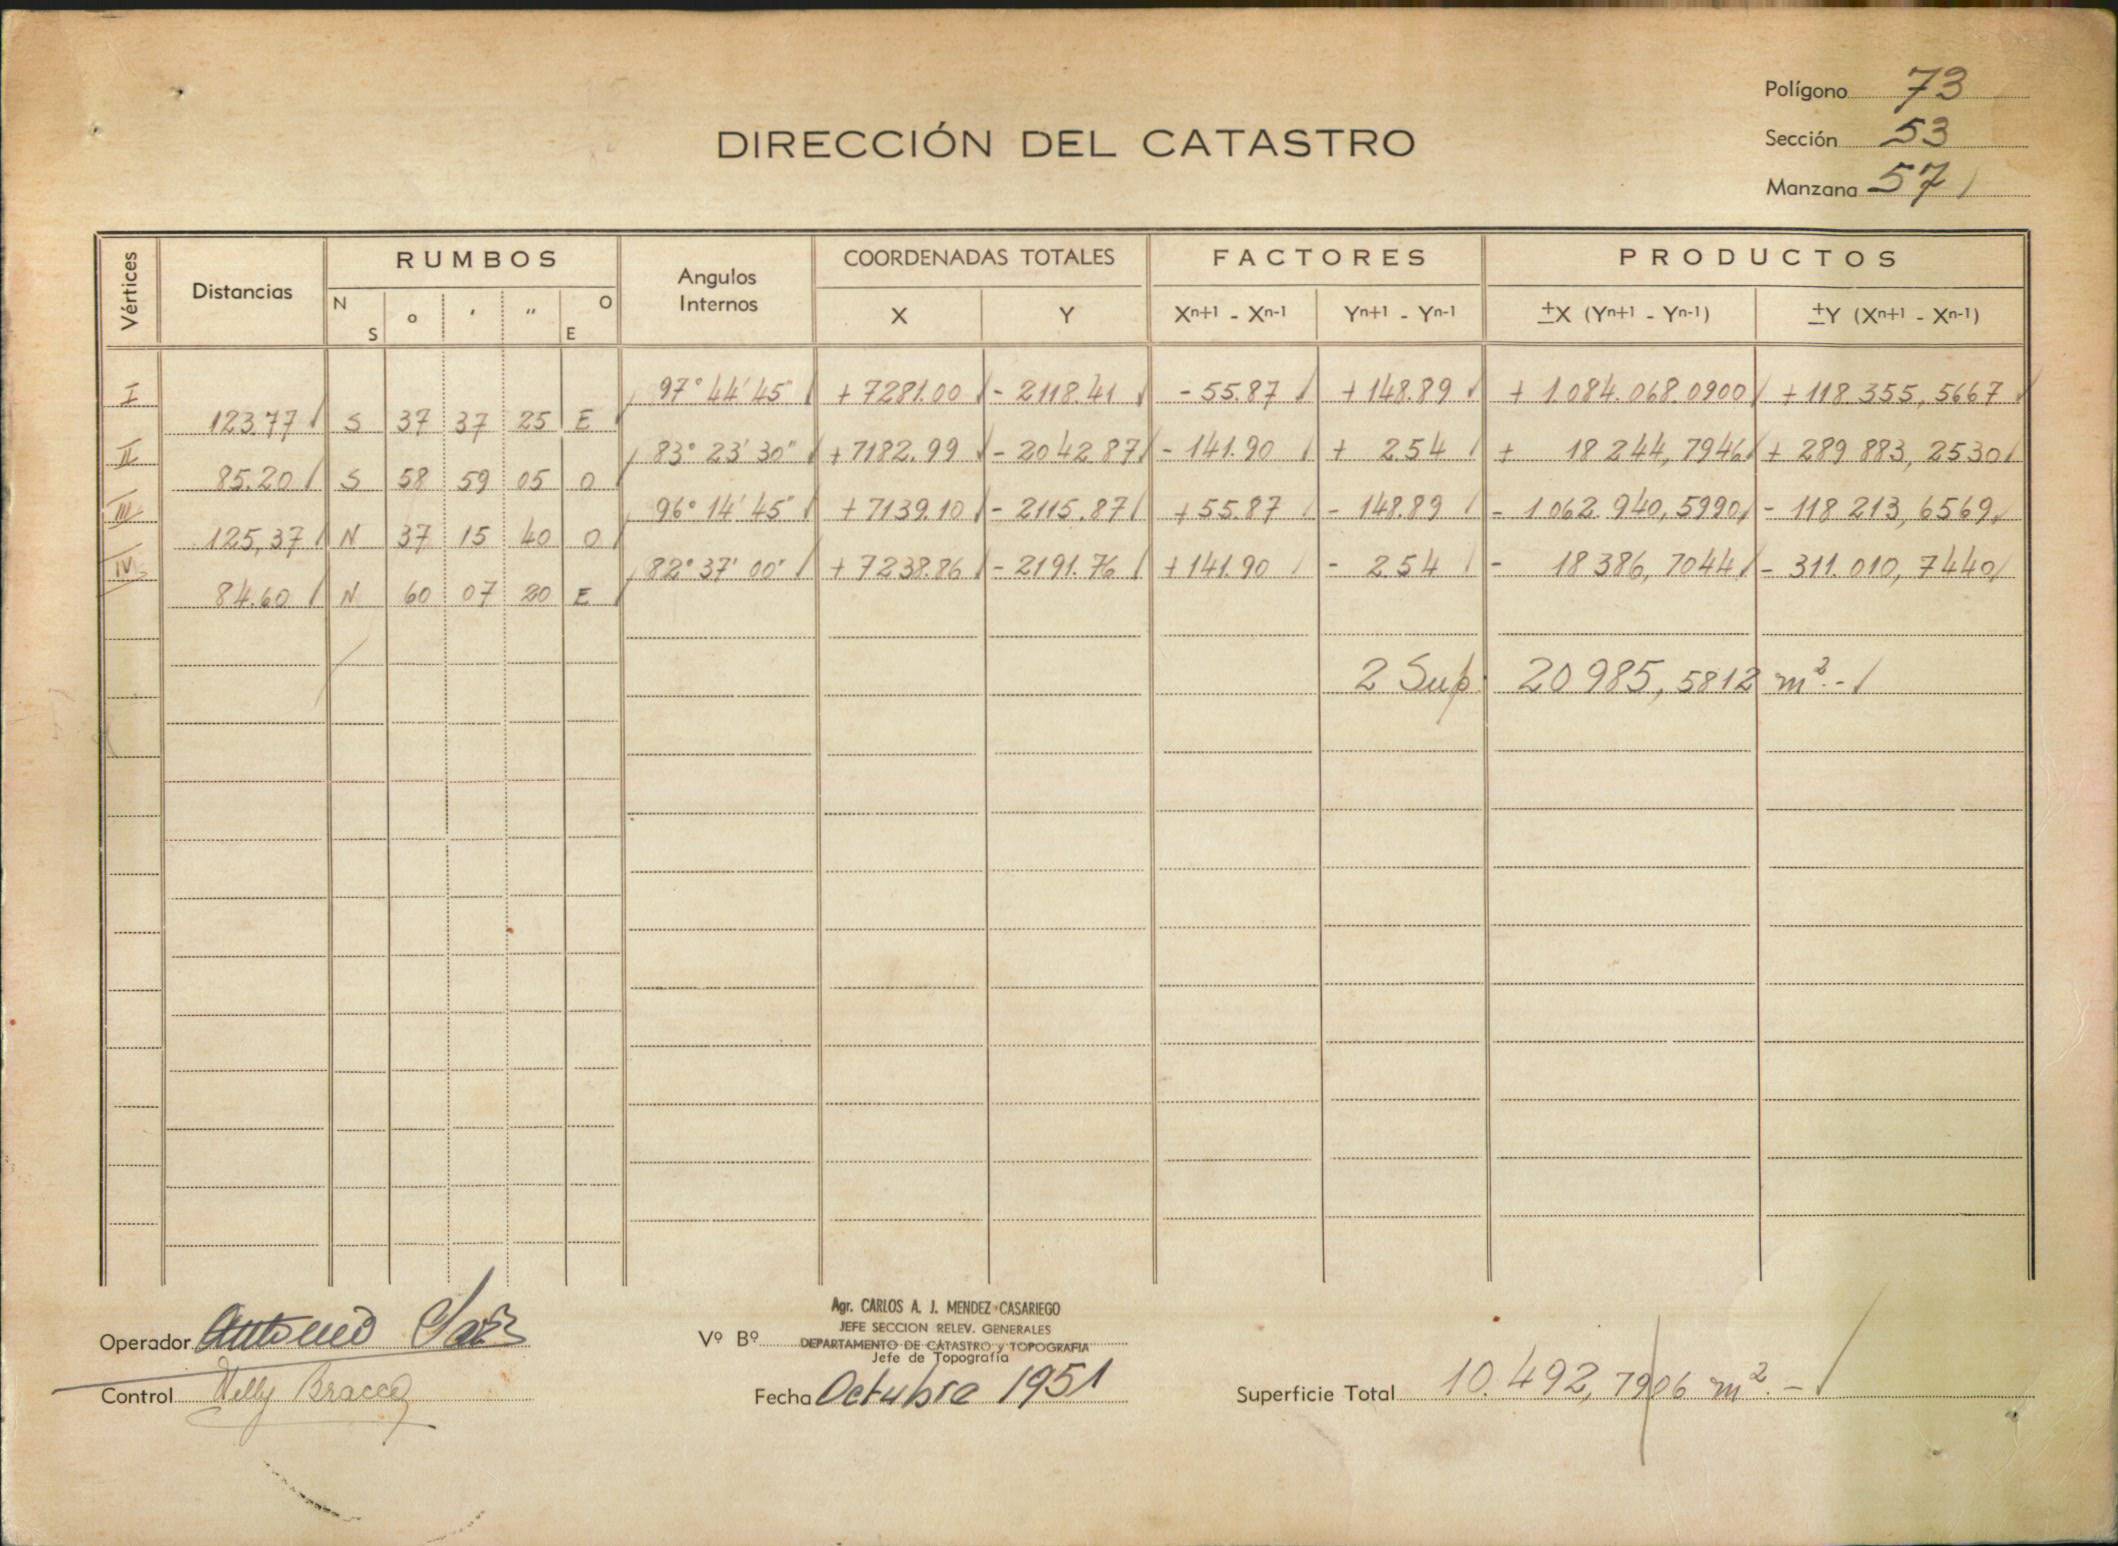 Polígono 73
DIRECCIÓN DEL CATASTRO
Sección 53
Manzana 57
Vértices Distancias RUMBOS Angulos Internos COORDENADAS TOTALES FACTORES PRODUCTOS
N S o ' " O E X Y Xn+1 - Xn-1 Yn+1 - Yn-1 ±X (Yn+1 - Yn-1) ±Y (Xn+1 - Xn-1)
I 97° 44' 45" + 7281.00 - 2118.41 - 55.87 + 148.89 + 1.084.068.0900 + 118 355, 5667
123.77 S 37 37 25 E
II 83° 23' 30" + 7182.99 - 2042.87 - 141.90 + 2.54 + 18 244, 7946 + 289 883, 2530
85.20 S 58 59 05 O
III 96° 14' 45" + 7139.10 - 2115.87 + 55.87 - 148.89 - 1 062.940, 5990 - 118 213, 6569
125,37 N 37 15 40 O
IV 82° 37' 00" + 7238.86 - 2191.76 + 141.90 - 2.54 - 18 386, 7044 - 311.010, 7440
84.60 N 60 07 20 E
2 Sup. 20 985, 5812 m². -
Agr. CARLOS A. J. MENDEZ CASARIEGO
JEFE SECCION RELEV. GENERALES
Operador Antonio Vº Bº DEPARTAMENTO DE CATASTRO y TOPOGRAFIA
Jefe de Topografía
Control Nelly Bracco Fecha Octubre 1951 Superficie Total 10.492, 7906 m². -